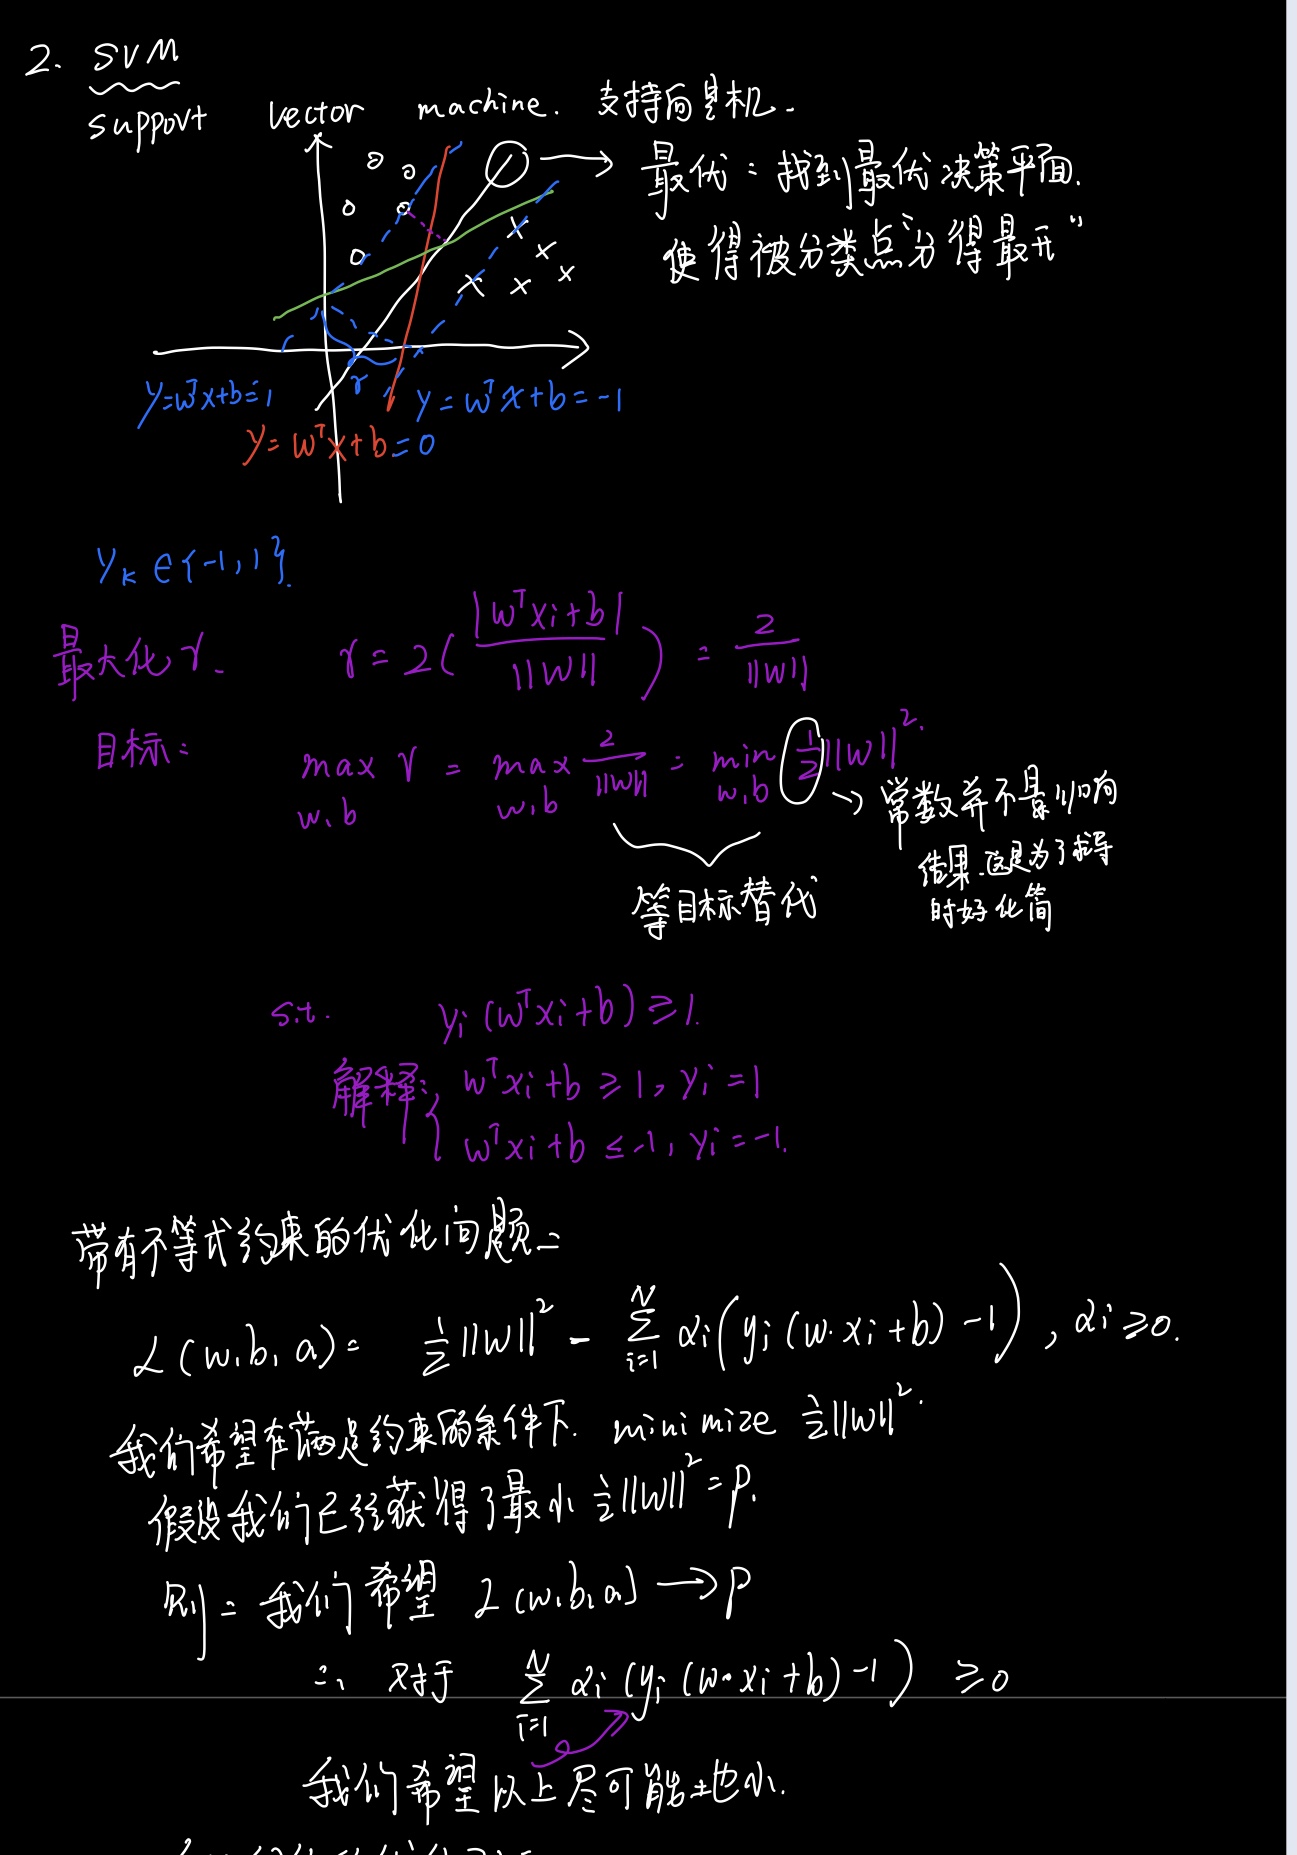 2. SVM
support vector machine. 支持向量机.
最优：找到最优决策平面.
使得被分类点“分得最开”
γ
y=wᵀx+b=1
y=wᵀx+b=-1
y=wᵀx+b=0
yₖ∈{-1,1}.
最大化γ. γ=2(|wᵀxi+b|/||w||)=2/||w||
目标：
max w,b γ = max w,b 2/||w|| = min w,b 1/2||w||².
常数并不影响
结果.这是为了求导
时好化简
等目标替代
s.t. yi(wᵀxi+b)≥1.
解释: { wᵀxi+b≥1, yi=1
wᵀxi+b≤-1, yi=-1.
带有不等式约束的优化问题：
L(w,b,a)= 1/2||w||² - Σ_{i=1}^{N} αi(yi(w·xi+b)-1), αi≥0.
我们希望在满足约束的条件下. minimize 1/2||w||².
假设我们已经获得了最小 1/2||w||²=p.
则：我们希望 L(w,b,a)→p
∴ 对于 Σ_{i=1}^{N} αi(yi(w·xi+b)-1) ≥0
我们希望以上尽可能地小.